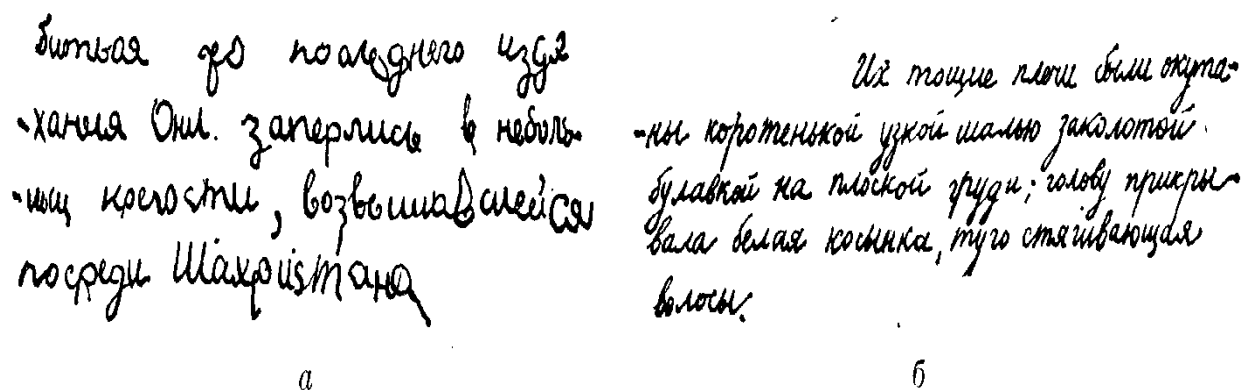 биться до последнего изды
-хания Они. заперлись в неболь-
-шщ крепости, возвышавшейся
посреди Шахристана
а
Их тощие плечи были окута-
-ны коротенькой узкой шалью заколотой
булавкой на плоской груди; голову прикры-
вала белая косынка, туго стягивающая
волосы.
б